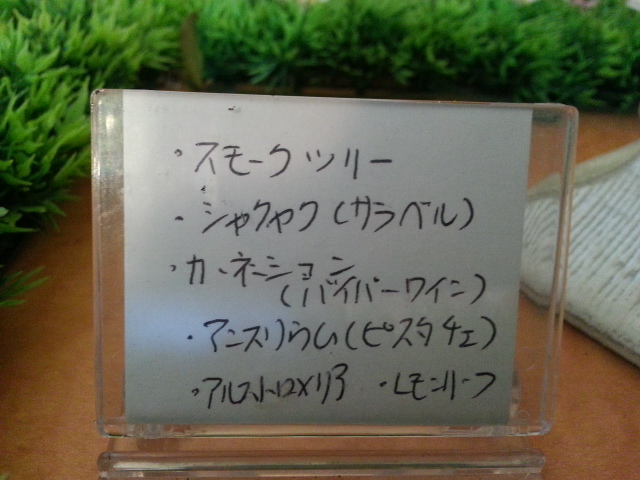 ・スモークツリー
・シャクヤク(サラベル)
・カーネーション
(バイパーワイン)
・アンスリウム(ピスタチェ)
・アルストロメリア ・レモンリーフ